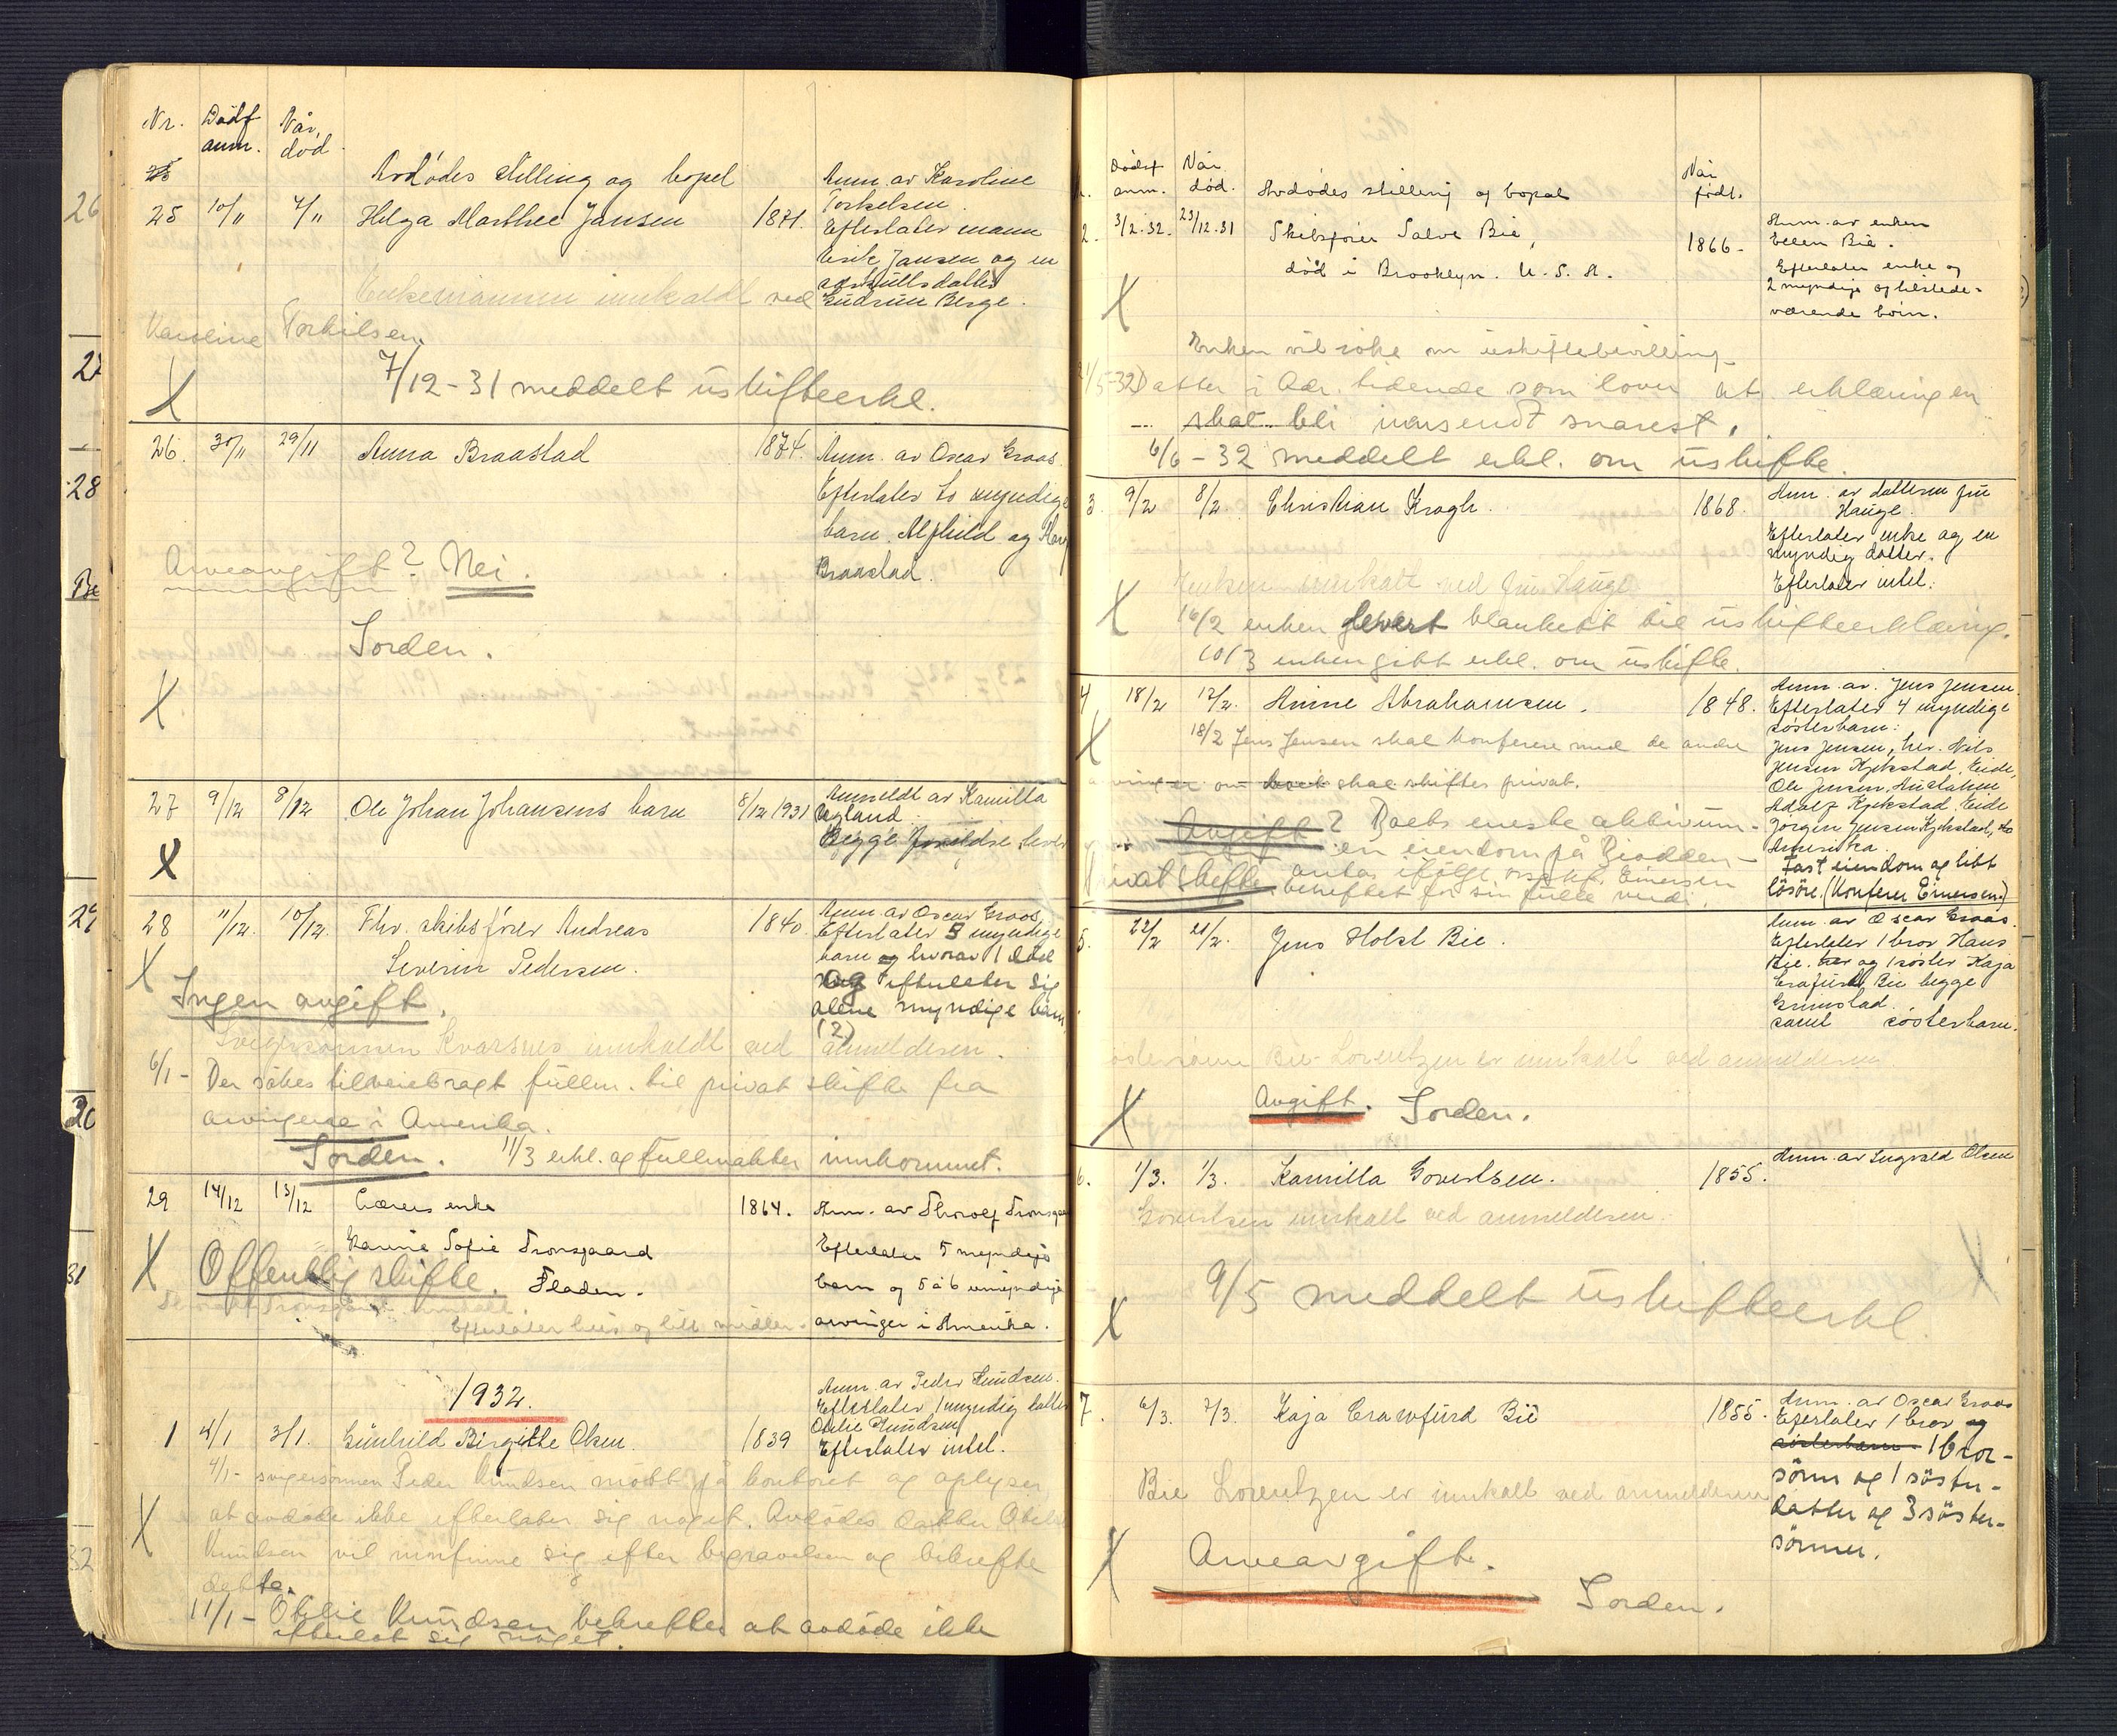 Nr.
Dødsf. anm.
Når død
Avdödes stilling og bopel
25
10/11
7/11
Helga Marthee Jansen
1871.
Anm. av Karoline
Torkelsen.
Efterlater mann
Eirik Jansen og en
adoptivdatter
Gudrun Berge.
Enkemannen innkaldt ved
Karoline Torkilsen.
7/12-31 meddelt uskifteerkl.
X
26.
30/11
29/11
Anna Braastad
1874.
Anm. av Oscar Graas.
Efterlater to myndige
barn. Alfhild og
Braastad.
Arveavgift? Nei.
I orden.
X
27
9/12
8/12
Ole Johan Johansens barn
8/12 1931
Anmeldt av Kamilla
Ugland.
Begge foreldre lever
X
28
11/12.
10/12.
Fhv. skibsfører Andreas
Severin Pedersen.
1840.
Anm. av Oscar Graas.
Efterlater 5 myndige
barn og hvorav 1 död
og efterlater sig
alene myndige barn
(2)
X
Ingen avgift.
Svigersønnen Kvarsnes innkaldt ved anmelderen.
6/1 - Der søkes tilveiebragt fullm. til privat skifte fra
arvingene i Amerika.
I orden. 11/3 erkl. og fullmakter innkommet.
29
14/12
13/12
Lærers enke
Karine Sofie Tronsgaard
Fladen.
1864.
Anm. av Thorolf Tronsgaard
Efterlater 5 myndige
barn og 5 à 6 umyndige
arvinger i Amerika.
X
Offentlig skifte.
Thorolf Tronsgaard innkalt.
Efterlater hus og litt midler.
1932.
1
4/1
3/1.
Gunhild Birgitte Olsen.
1839
Anm. av Peder Knudsen.
Efterlater 1 myndig datter
Otelie Knudsen
Efterlater intet.
4/1- svigersønnen Peder Knudsen møtt på kontoret og oplyser
at avdøde ikke efterlater sig noget. Avdødes datter Otelie
Knudsen vil innfinne sig efter begravelsen og bekrefte
dette.
X
11/1- Otelie Knudsen bekrefter at avdöde ikke
efterlot sig noget.
Dødsf. anm.
Når død.
Avdödes stilling og bopel
Når født.
2.
3/2.32.
23/12.31
Skibsfører Salve Bie,
død i Brooklyn. U.S.A.
1866-
Anm. av enken
Ellen Bie.
Efterlater enke og
2 myndige og tilstede-
værende børn.
X
Enken vil søke om uskiftebevilling.
Datter i Adr. tidende som lover at erklæringen
skal bli innsendt snarest.
6/6-32 meddelt erkl. om uskifte.
3
9/2
8/2.
Christian Krogh.
1868.
Anm. av datteren fru
Hauge.
Efterlater enke og en
myndig datter.
Efterlater intet.
Enken innkalt ved fru Hauge
X
16/2 enken levert blankett til uskifteerklæring.
10/3 enken gitt erkl. om uskifte.
4
18/2
17/2.
Anne Abrahamsen.
1848.
Anm. av. Jens Jensen.
Efterlater 4 myndige
søsterbarn:
Jens Jensen, her. Nils
Jensen Kjekstad, Eide,
Ole Jensen, Australien
Adolf Kjekstad, Eide
Jörgen Jensen Kjekstad,
Amerika.
Fast eiendom og litt
lösöre. (Konferer Einersen)
X
18/2 Jens Jensen skal konferere med de andre
arvinger om boet skal skiftes privat.
Avgift? Boets eneste aktivum -
en eiendom på Biodden -
antas ifölge o.r.sakf. Einersen
beheftet for sin fulle verdi.
Privat skifte
5.
22/2
21/2.
Jens Holst Bie.
Anm. av Oscar Graas.
Efterlater 1 bror Hans
Bie. her og 1 søster Kaja
Crafurd Bie begge
Grimstad.
samt søsterbarn.
Bie-Lorentzen er innkalt ved anmelderen.
X
Avgift. I orden.
6.
1/3.
1/3.
Kamilla Govertsen.
1855.
Anm. av Ingvald Olsen
Govertsen innkalt ved anmelderen.
X
9/5 meddelt uskifteerkl.
X
7.
6/3.
7/3.
Kaja Crawfurd Bie
1855.
Anm. av Oscar Graas
Efterlater 1 bror og
søsterbarn 1 bror-
sönn og 1 söster-
datter og 3 söster-
sönner.
Bie Lorentzen er innkalt ved anmelderen
X
Arveavgift.
I orden.